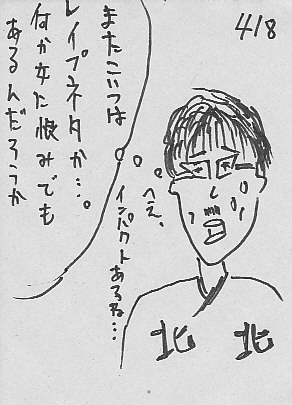 418
またこいつは
レイプネタか…。
何か女に恨みでも
あるんだろうか
へえ、
インパクトあるね…
北 北